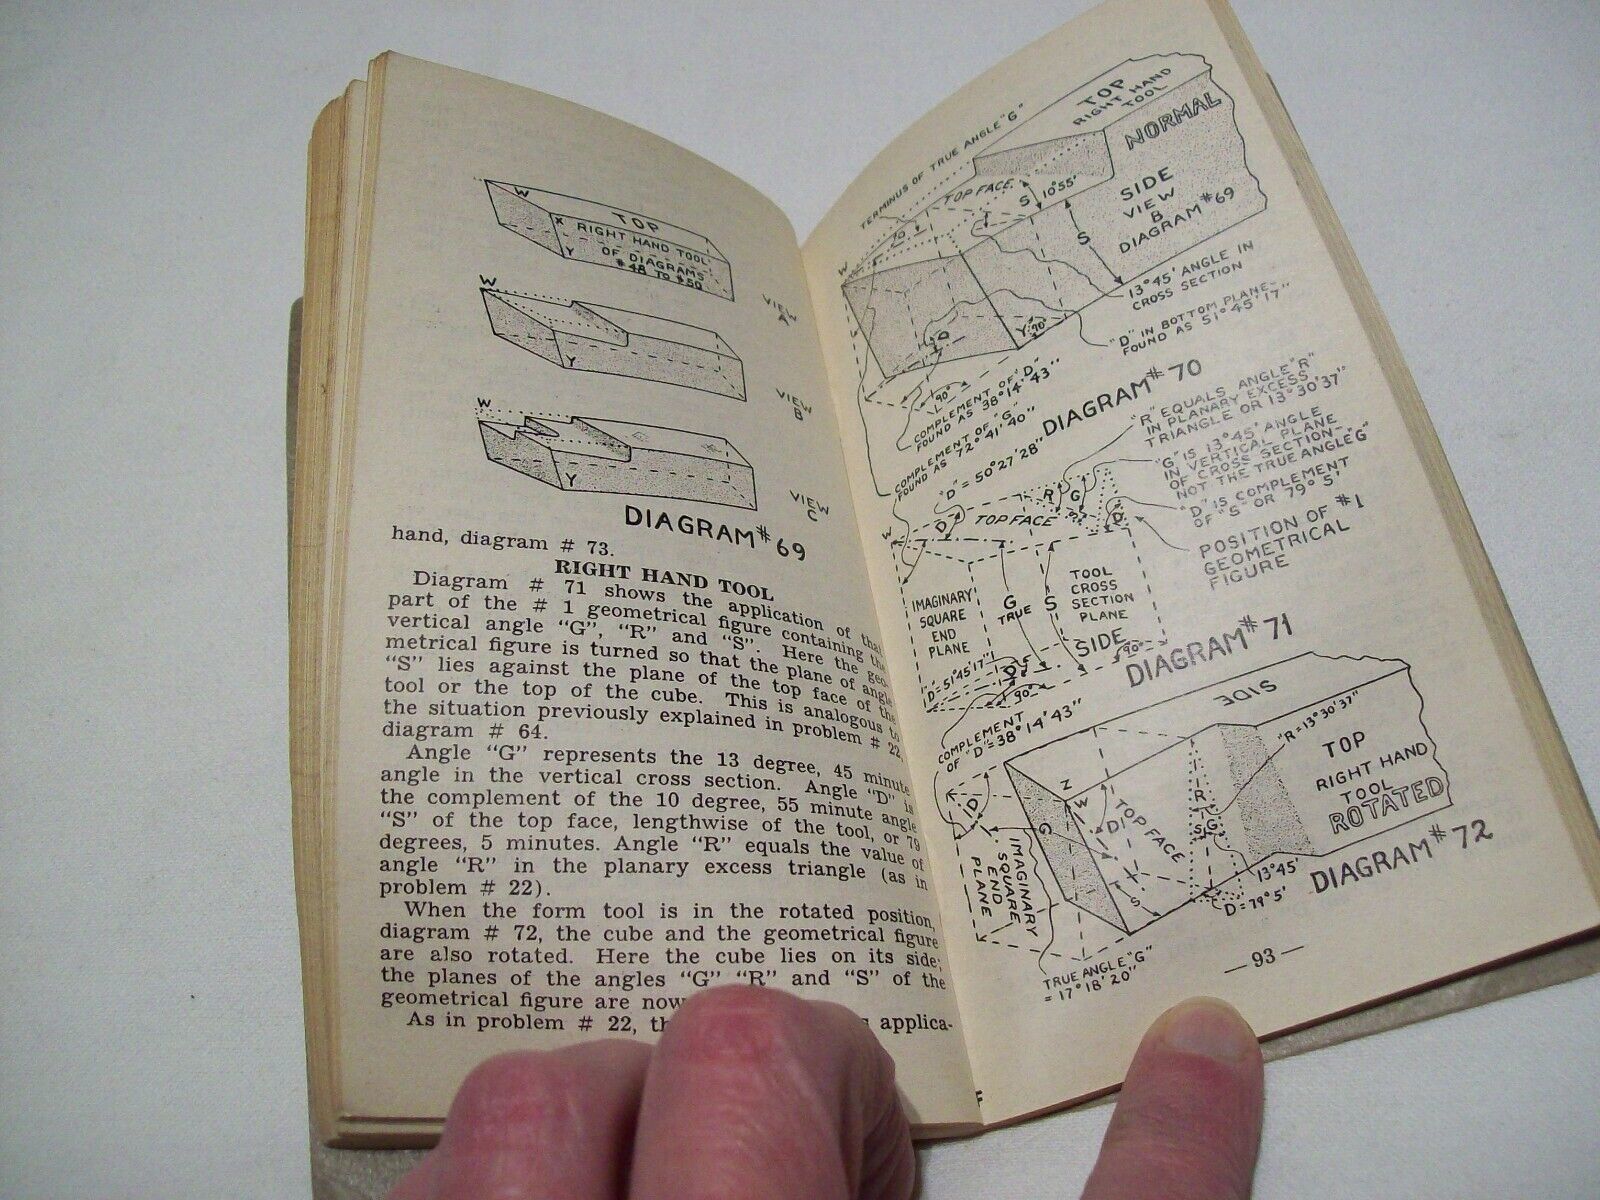 W
TOP
X
RIGHT HAND TOOL
Y
OF DIAGRAMS
#48 TO #50
VIEW
A
W
Y
VIEW
B
W
Y
VIEW
C
DIAGRAM #69
hand, diagram # 73.
RIGHT HAND TOOL
Diagram # 71 shows the application of that
part of the # 1 geometrical figure containing the
vertical angle "G", "R" and "S". Here the geo-
metrical figure is turned so that the plane of angle
"S" lies against the plane of the top face of the
tool or the top of the cube. This is analogous to
the situation previously explained in problem # 22,
diagram # 64.
Angle "G" represents the 13 degree, 45 minute
angle in the vertical cross section. Angle "D" is
the complement of the 10 degree, 55 minute angle
"S" of the top face, lengthwise of the tool, or 79
degrees, 5 minutes. Angle "R" equals the value of
angle "R" in the planary excess triangle (as in
problem # 22).
When the form tool is in the rotated position,
diagram # 72, the cube and the geometrical figure
are also rotated. Here the cube lies on its side;
the planes of the angles "G" "R" and "S" of the
geometrical figure are now
As in problem # 22, applica-
TERMINUS OF TRUE ANGLE "G"
TOP
RIGHT HAND
TOOL
NORMAL
TOP FACE
S
10°55'
SIDE
VIEW
B
DIAGRAM #69
W
S
13°45' ANGLE IN
CROSS SECTION
D
Y
90°
"D" IN BOTTOM PLANE-
FOUND AS 51°45'17"
90°
COMPLEMENT OF "D"
FOUND AS 38°14'43"
COMPLEMENT OF "G"
FOUND AS 72°41'40"
DIAGRAM #70
"D" = 50°27'28"
"R" EQUALS ANGLE "R"
IN PLANARY EXCESS
TRIANGLE OR 13°30'37"
"G" IS 13°45' ANGLE
IN VERTICAL PLANE
OF CROSS SECTION-
NOT THE TRUE ANGLE "G"
"D" IS COMPLEMENT
OF "S" OR 79°5'
POSITION OF #1
GEOMETRICAL
FIGURE
W
D
TOP FACE
R
G
D
IMAGINARY
SQUARE
END
PLANE
G
TRUE
S
TOOL
CROSS
SECTION
PLANE
SIDE
90°
D=51°45'17"
90°
COMPLEMENT
OF "D"=38°14'43"
DIAGRAM #71
SIDE
"R"=13°30'37"
TOP
RIGHT HAND
TOOL
ROTATED
Z
W
D
G
D
TOP FACE
R
S
G
S
IMAGINARY
SQUARE
END
PLANE
13°45'
D=79°5'
DIAGRAM #72
TRUE ANGLE "G"
= 17°18'20"
— 93 —